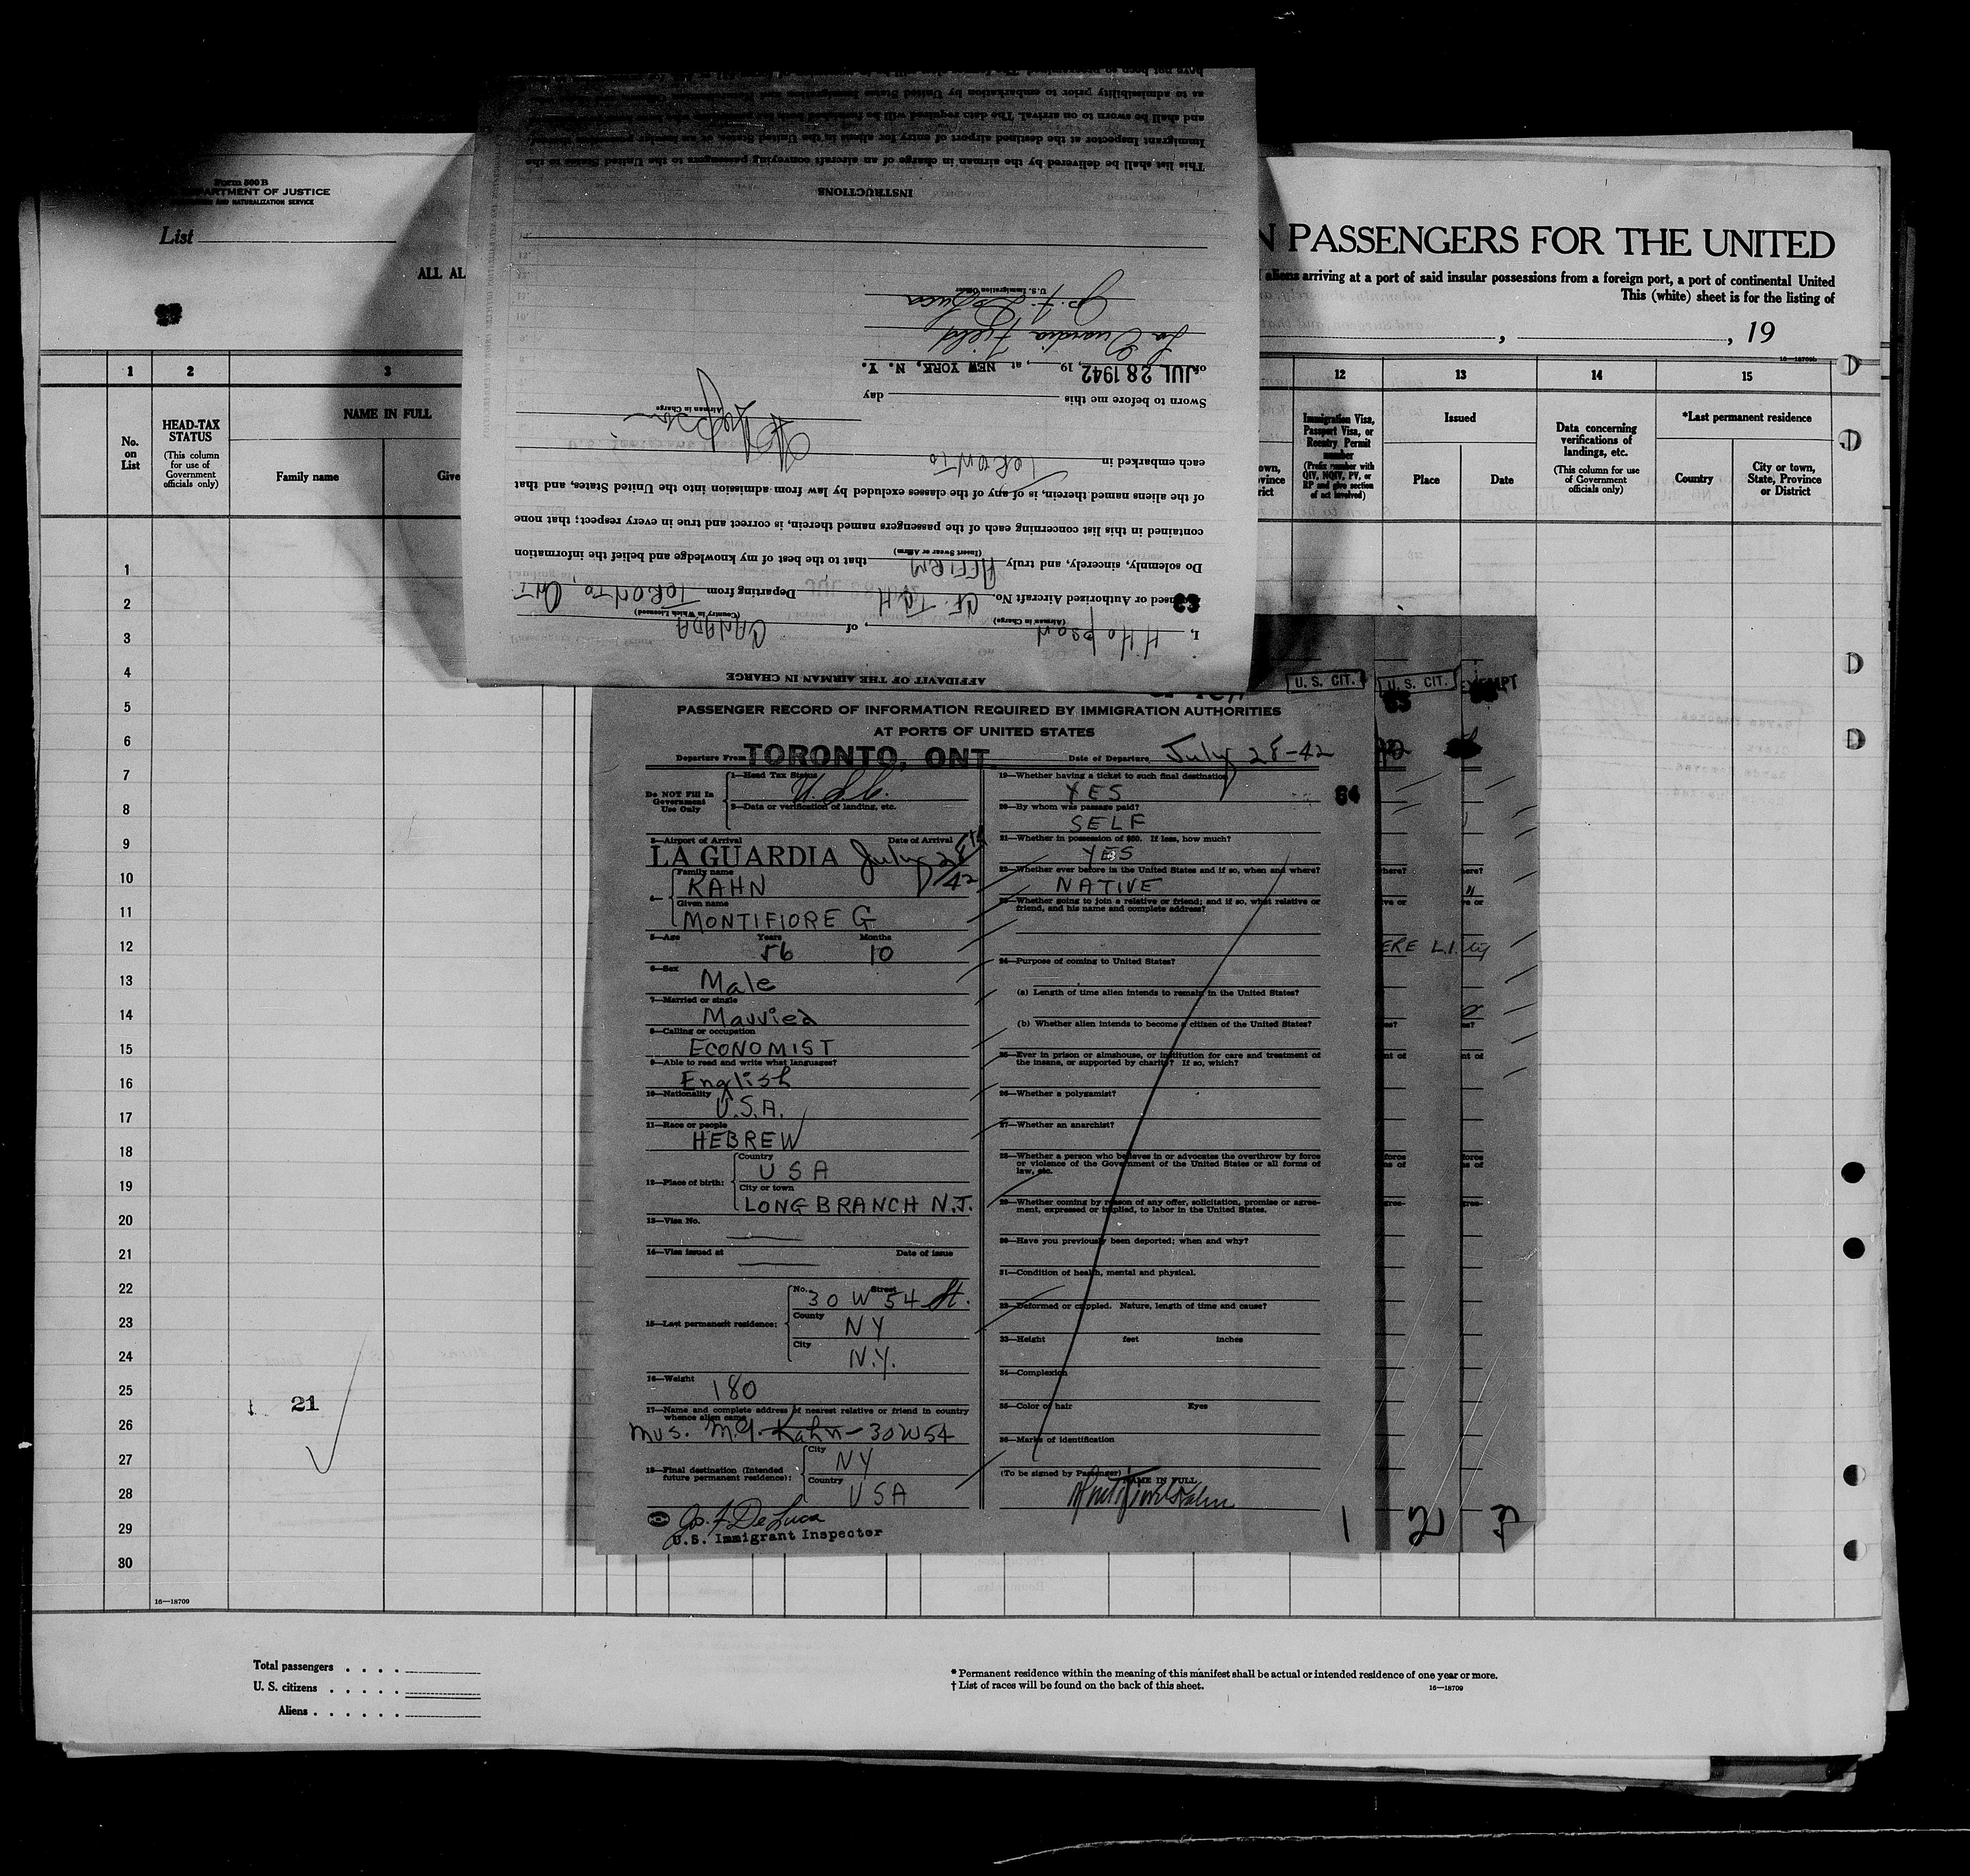 Form 500 B
DEPARTMENT OF JUSTICE
IMMIGRATION AND NATURALIZATION SERVICE
List
ALL AL
N PASSENGERS FOR THE UNITED
aliens arriving at a port of said insular possessions from a foreign port, a port of continental United
This (white) sheet is for the listing of
, , 19
1 2 3 12 13 14 15
No. on List
HEAD-TAX STATUS
(This column for use of Government officials only)
NAME IN FULL
Family name
Give
own,
vince
rict
Immigration Visa, Passport Visa, or Reentry Permit number
(Prefix number with QIV, NQIV, PV, or RP and give section of act involved)
Issued
Place
Date
Data concerning verifications of landings, etc.
(This column for use of Government officials only)
*Last permanent residence
Country
City or town, State, Province or District
1
2
3
4
5
6
7
8
9
10
11
12
13
14
15
16
17
18
19
20
21
22
23
24
25
26
27
28
29
30
21
16—18709
Total passengers . . . .
U. S. citizens . . . . .
Aliens . . . . . .
* Permanent residence within the meaning of this manifest shall be actual or intended residence of one year or more.
† List of races will be found on the back of this sheet.
16—18709
AFFIDAVIT OF THE AIRMAN IN CHARGE
I, H Hopson, of CANADA
(Airman in Charge) (Country in Which Licensed)
Licensed or Authorized Aircraft No. CF. TCH Departing from TORONTO, ONT
Do solemnly, sincerely, and truly AFFIRM that to the best of my knowledge and belief the information
(Insert Swear or Affirm)
contained in this list concerning each of the passengers named therein, is correct and true in every respect; that none
of the aliens named therein, is of any of the classes excluded by law from admission into the United States, and that
each embarked in TORONTO
Airman in Charge
Sworn to before me this day
of JUL 28 1942, 19 , at NEW YORK, N. Y.
La Guardia Field
U. S. Immigration Officer
INSTRUCTIONS
This list shall be delivered by the airman in charge of an aircraft conveying passengers to the United States to the
Immigrant Inspector at the destined airport of entry for aliens in the United States
and shall be sworn to on arrival. The data required will be furnished
as to admissibility prior to embarkation by United States
U. S. CIT.
U. S. CIT.
EXEMPT
PASSENGER RECORD OF INFORMATION REQUIRED BY IMMIGRATION AUTHORITIES
AT PORTS OF UNITED STATES
Departure From TORONTO, ONT. Date of Departure July 28-42
Do NOT Fill In Government Use Only
1—Head Tax Status
U.S.C.
2—Data or verification of landing, etc.
3—Airport of Arrival Date of Arrival
LA GUARDIA July 28th/42
4—
Family name
KAHN
Given name
MONTIFIORE G
5—Age Years Months
56 10
6—Sex
Male
7—Married or single
Married
8—Calling or occupation
ECONOMIST
9—Able to read and write what languages?
English
10—Nationality
U.S.A.
11—Race or people
HEBREW
12—Place of birth:
Country
USA
City or town
LONG BRANCH N.J.
13—Visa No.
14—Visa issued at Date of issue
15—Last permanent residence:
No. Street
30 W 54 St.
County
NY
City
N.Y.
16—Weight
180
17—Name and complete address of nearest relative or friend in country whence alien came
Mrs. M.G. Kahn - 30W54
18—Final destination (Intended future permanent residence):
City
NY
Country
USA
Jos. F. De Luca
U.S. Immigrant Inspector
19—Whether having a ticket to such final destination
YES
64
20—By whom was passage paid?
SELF
21—Whether in possession of $50. If less, how much?
YES
22—Whether ever before in the United States and if so, when and where?
NATIVE
23—Whether going to join a relative or friend; and if so, what relative or
friend, and his name and complete address?
24—Purpose of coming to United States?
(a) Length of time alien intends to remain in the United States?
(b) Whether alien intends to become a citizen of the United States?
25—Ever in prison or almshouse, or institution for care and treatment of
the insane, or supported by charity? If so, which?
26—Whether a polygamist?
27—Whether an anarchist?
28—Whether a person who believes in or advocates the overthrow by force
or violence of the Government of the United States or all forms of
law, etc.
29—Whether coming by reason of any offer, solicitation, promise or agree-
ment, expressed or implied, to labor in the United States.
30—Have you previously been deported; when and why?
31—Condition of health, mental and physical.
32—Deformed or crippled. Nature, length of time and cause?
33—Height feet inches
34—Complexion
35—Color of hair Eyes
36—Marks of identification
(To be signed by Passenger)
NAME IN FULL
ERE L.I.
1 2